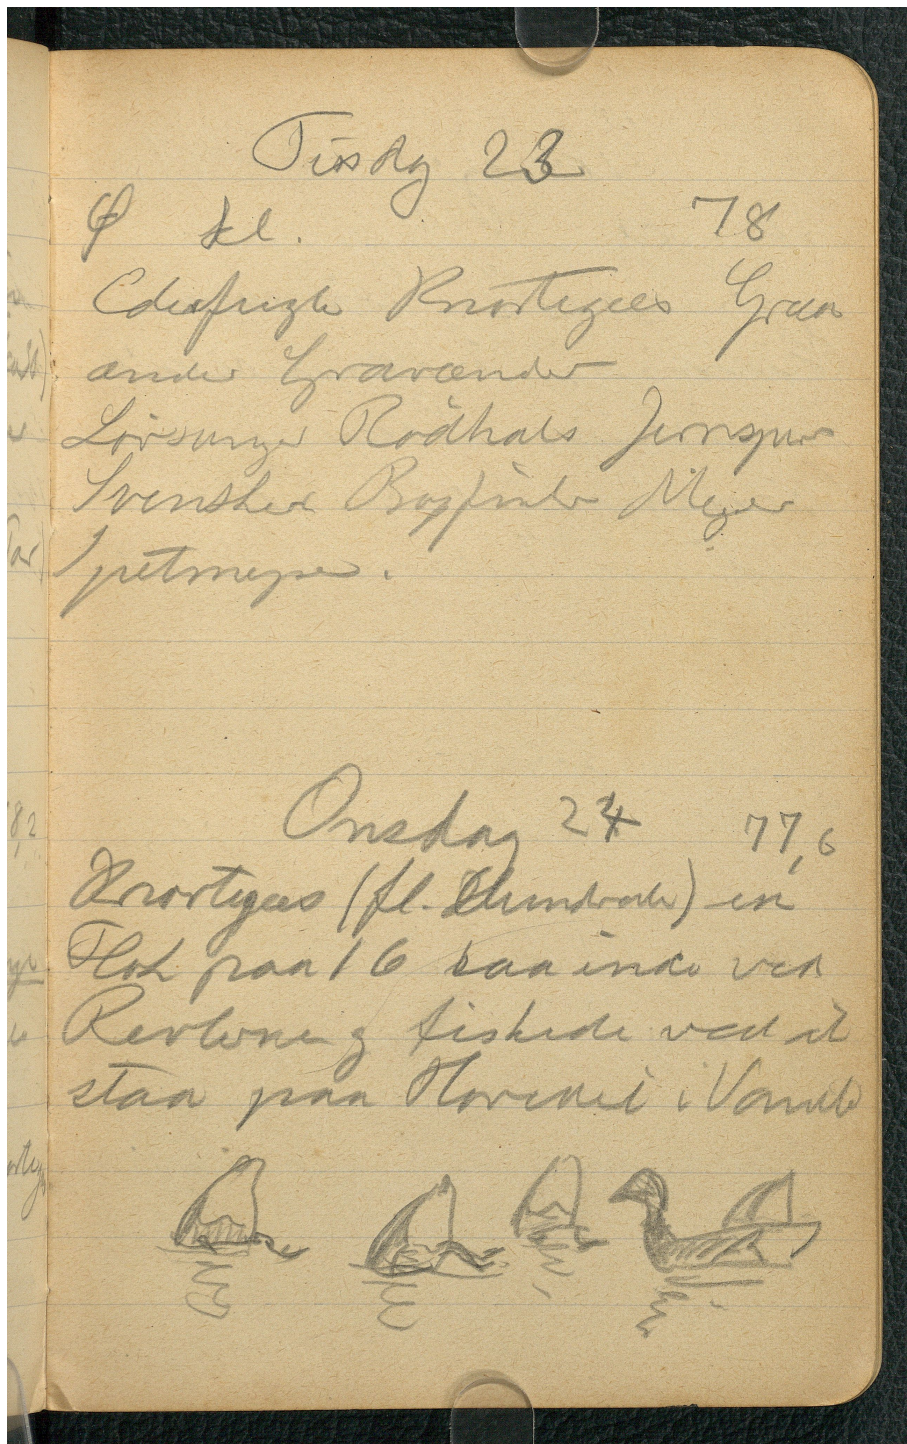 Tisdag 23
Ø kl. 78
Ederfugle Knortegees Graa
ænder Gravænder
Løvsanger Rødhals Jernspur
Svensker Bogfinke Mejser
Spetmejse.
Onsdag 24 77,6
Knortegees (fl. Hundrede) en
Flok paa 16 saa inde ved
Revlerne og fiskede ved at
staa paa Hovedet i Vandet